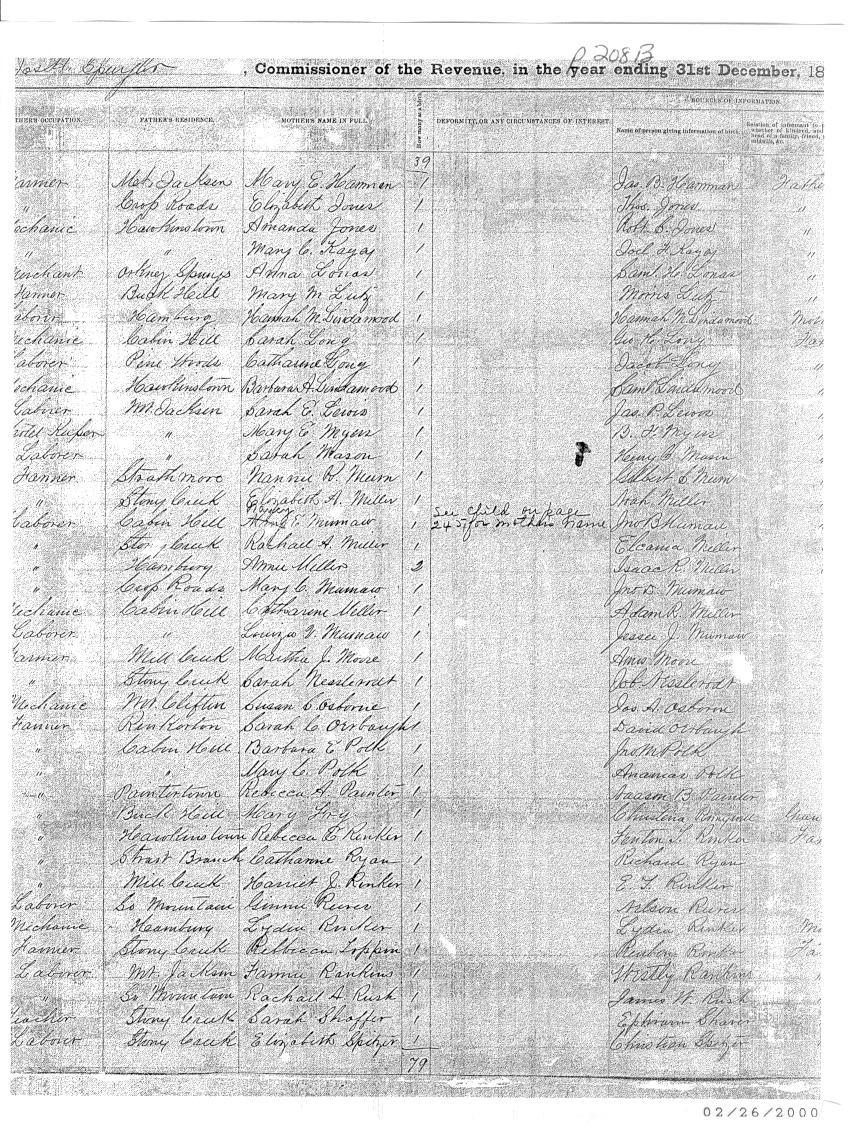 p 208 B
, Commissioner of the Revenue, in the year ending 31st December, 18
HER'S OCCUPATION. FATHER'S RESIDENCE. MOTHER'S NAME IN FULL. How many at a birth. DEFORMITY, OR ANY CIRCUMSTANCES OF INTEREST. SOURCES OF INFORMATION.
Name of person giving information of birth. Relation of informant to
whether of kindred, and
head of a family, friend,
midwife, &c.
39
armer Mt. Jackson Mary E. Hamman 1 Jas. B. Hamman Fathe
" Crop Roads Elizabeth Jones 1 Thos. Jones "
echanic Hawkinstown Amanda Jones 1 Robt S. Jones "
" " Mary C. Kagay 1 Joel F. Kagay "
erchant Orkney Springs Anna Lonas 1 Saml. H. Lonas "
Farmer Buck Hill Mary M. Lutz 1 Morris Lutz "
aborer Hamburg Hannah M. Lindamood 1 Hannah M. Lindamood Moth
echanic Cabin Hill Sarah Long 1 Geo. K. Long Fat
aborer Pine Woods Catharine Long 1 Jacob Long "
echanic Hawkinstown Barbara A. Lindamood 1 Saml Lindamood "
Laborer Mt. Jackson Sarah E. Lewis 1 Jas. P. Lewis "
otel Keeper " Mary E. Myers 1 B. F. Myers "
Laborer " Sarah Mason 1 Henry C. Mason "
Farmer Strathmore Nannie R. Mum 1 Gilbert S. Mum "
" Stony Creek Elizabeth A. Miller 1 Noah Miller "
Nancy See child on page
Laborer Cabin Hill E. Mumaw 1 245 for mothers name Jno B Mumaw "
" Stony Creek Rachael A. Miller 1 Elcania Miller
" Hamburg Annie Miller 2 Isaac R. Miller "
" Crop Roads Mary C. Mumaw 1 Jno D. Mumaw
echanic Cabin Hill Catharine Miller 1 Adam R. Miller
Laborer " Louiza V. Mumaw 1 Jessee J. Mumaw
armer Mill Creek Martha J. Moore 1 Amos Moore
" Stony Creek Sarah Nesslerodt 1 Job Nesslerodt
Mechanic Mt. Clifton Susan C Osborne 1 Jas. A. Osborne
Farmer Rinkerton Sarah C. Orrbaugh 1 David Orrbaugh
" Cabin Hill Barbara E Polk 1 Jno M Polk
" " Mary C. Polk 1 Ananias Polk
" Paintertown Rebecca A. Painter 1 B Painter
" Buck Hill Mary Fry 1 Christena
" Hawkinstown Rebecca C Rinker 1 Fenton T. Rinker
" Branch Catharine Ryan 1 Richard Ryan
" Mill Creek Harriet J. Rinker 1 E. T. Rinker
Laborer So Mountain Ginnie 1 Nelson
Mechanic Hamburg Lydia Rinker 1 Lydia Rinker
Farmer Stony Creek Rebbecca 1 Reuben
Laborer Mt. Jackson Fannie Rankins 1 Westly Rankins
" So Mountain Rachael A Rush 1 James W. Rush
eacher Stony Creek Sarah Shaffer 1 Ephriam
Laborer Stony Creek Elizabeth Spitzer 1 Christian Spitzer
79
02/26/2000